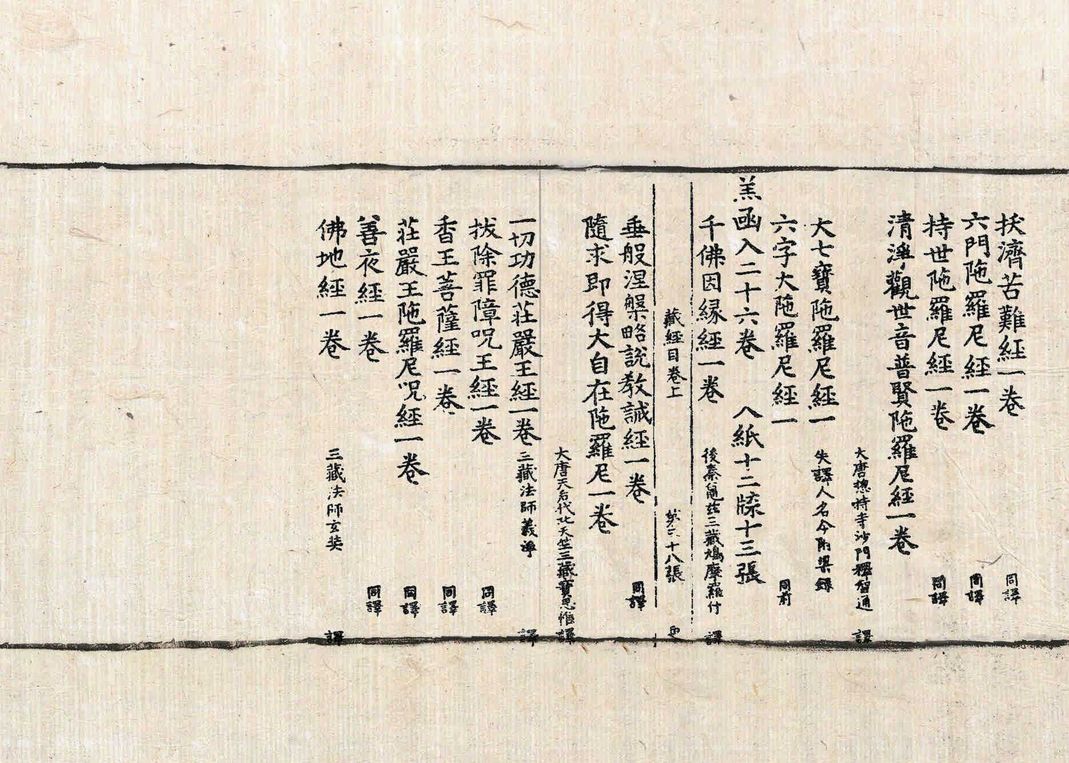 拔濟苦難經一卷 同譯
六門陁羅尼經一卷 同譯
持世陁羅尼經一卷 同譯
清淨觀世音普賢陁羅尼經一卷
大唐揔持寺沙門釋智通 譯
大七寶陁羅尼經一 失譯人名今附梁錄
六字大陁羅尼經一 同前
羔函入二十六卷 入紙十二牒十三張
千佛因緣經一卷 後秦龜玆三藏鳩摩羅什 譯
藏經目卷上 第六十八張
垂般涅槃略說教誡經一卷 同譯
隨求即得大自在陁羅尼一卷
大唐天后代北天竺三藏寶思惟譯
一切功德莊嚴王經一卷 三藏法師義淨 譯
拔除罪障呪王經一卷 同譯
香王菩薩經一卷 同譯
莊嚴王陁羅尼呪經一卷 同譯
善夜經一卷 同譯
佛地經一卷 三藏法師玄奘 譯